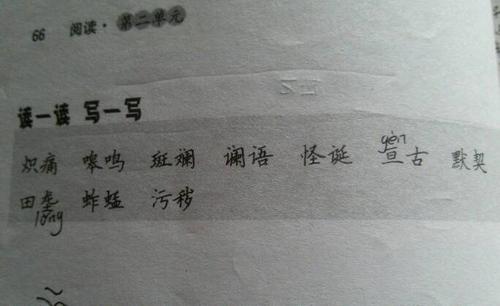 66 阅读·第二单元
读一读 写一写
gèn
炽痛 嗥鸣 斑斓 谰语 怪诞 亘古 默契
田垄 蚱蜢 污秽
lǒng